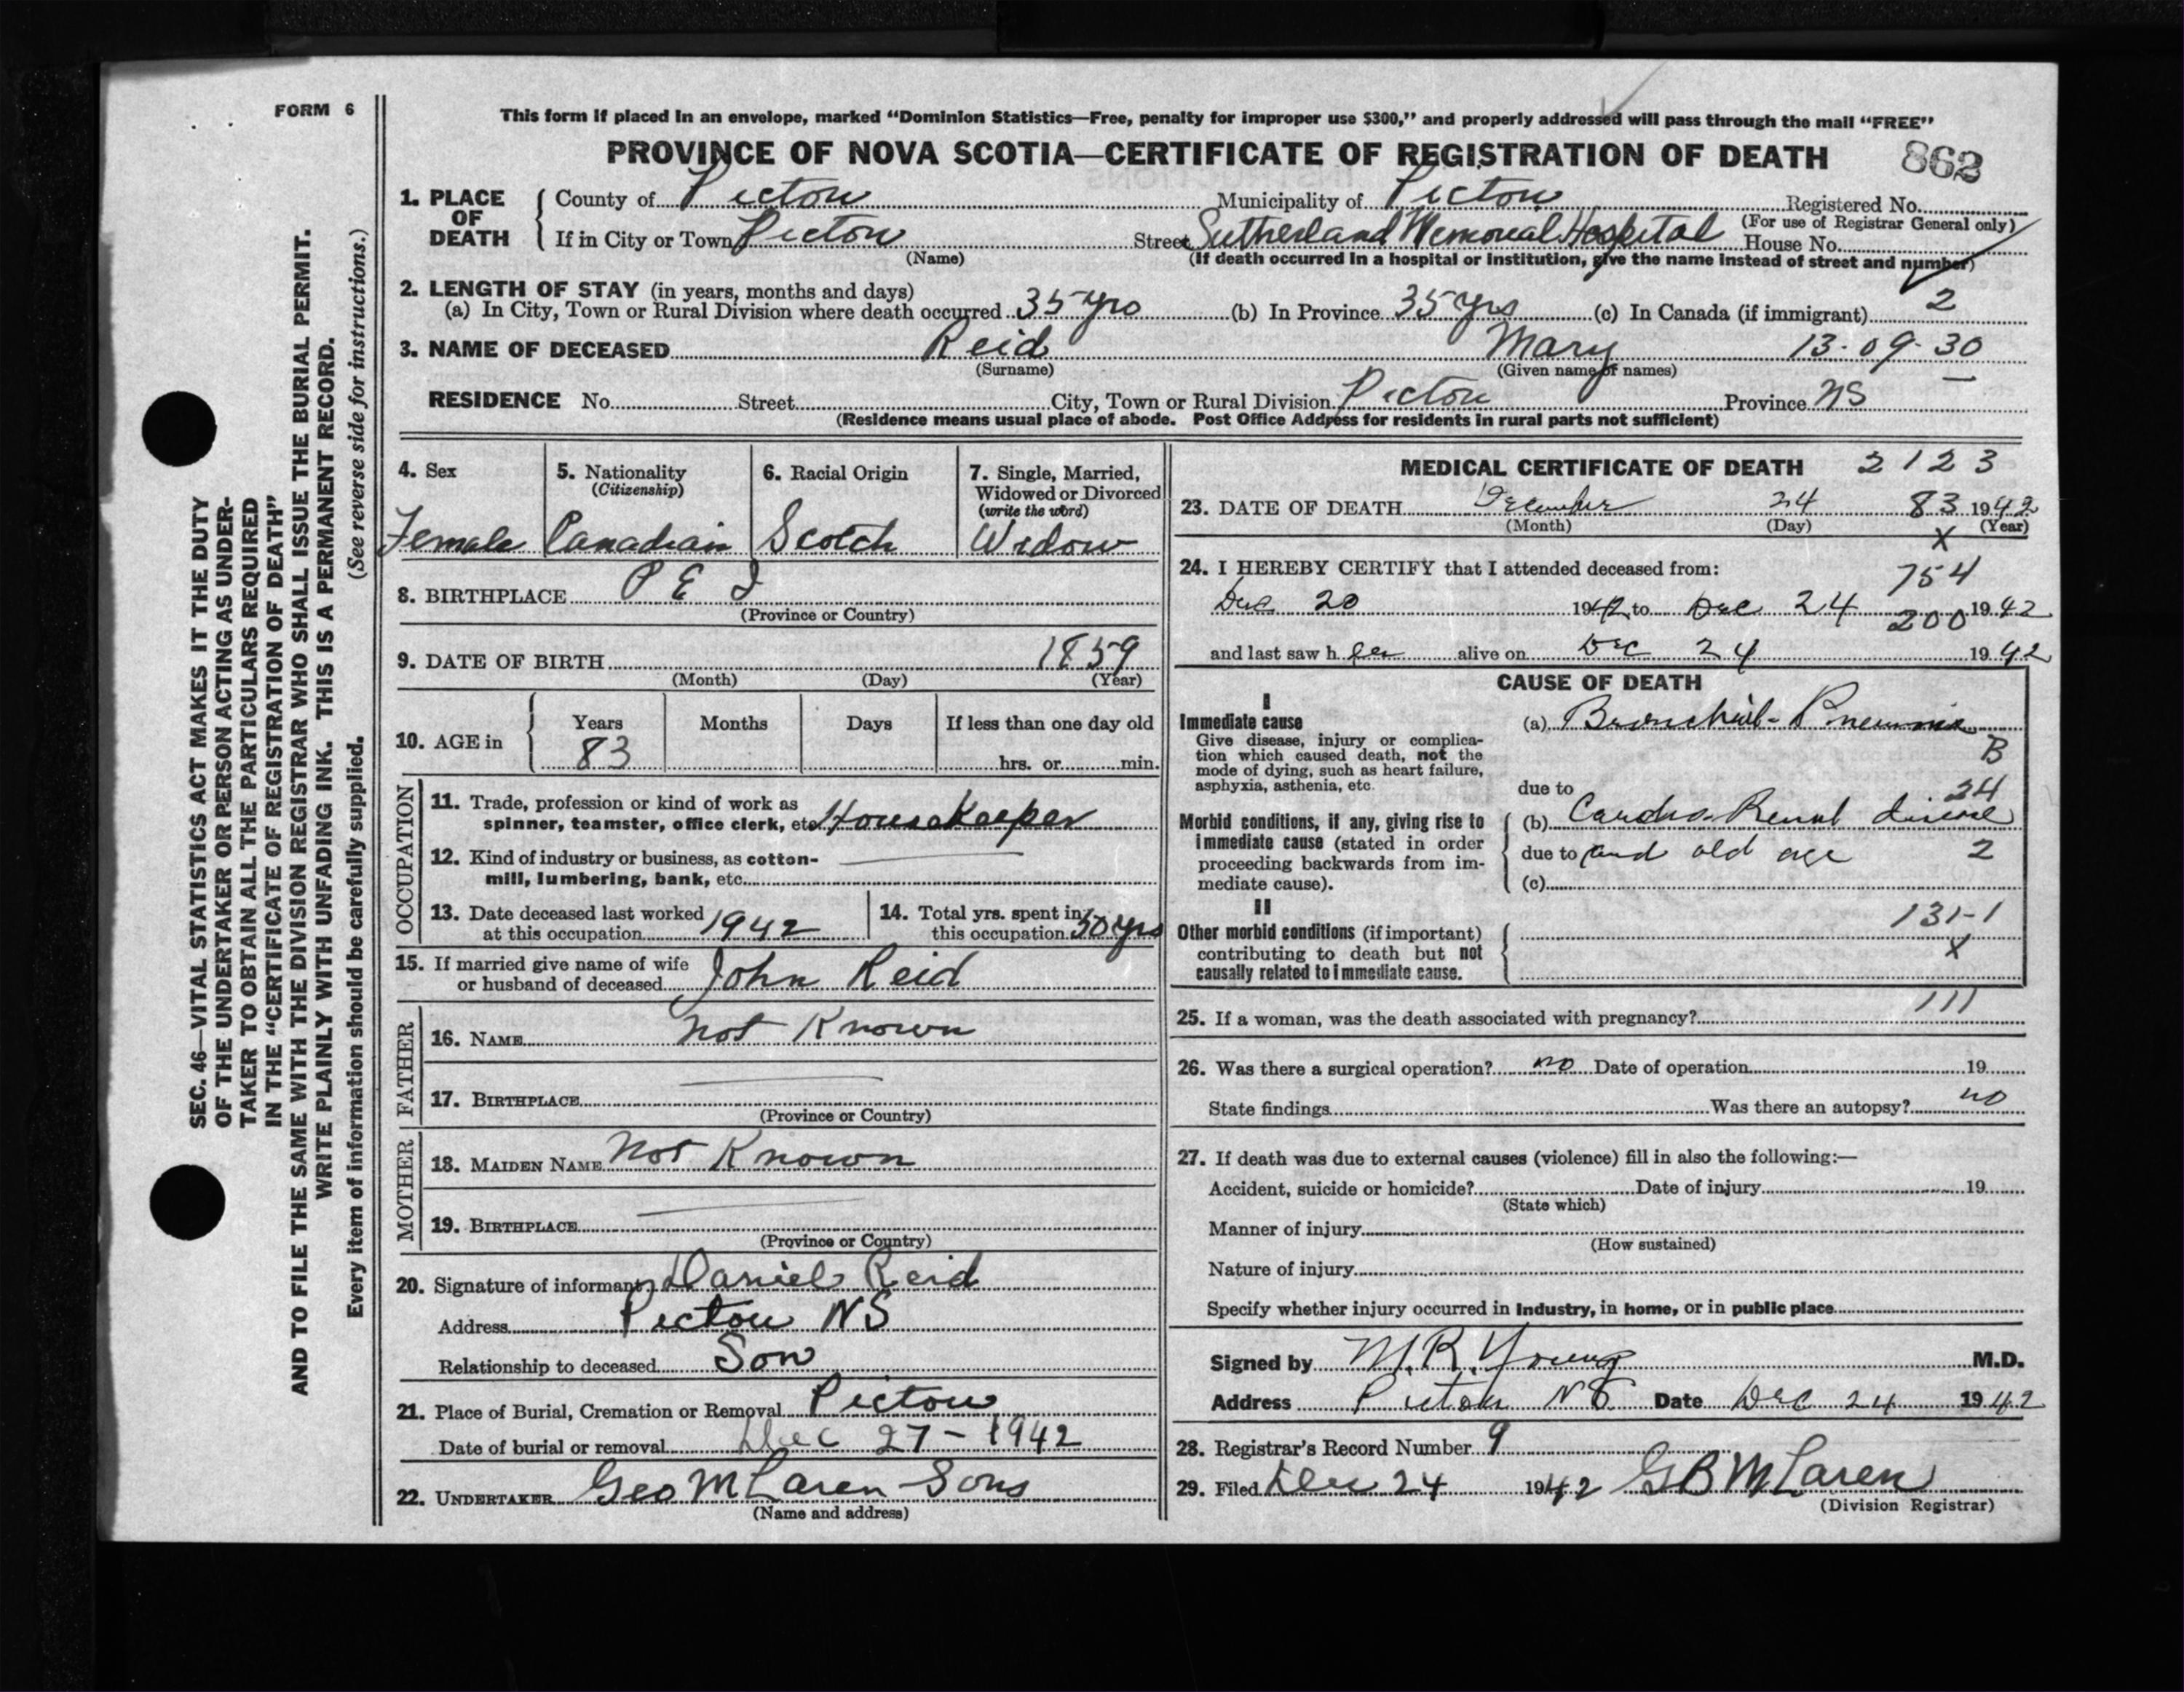 FORM 6
This form if placed in an envelope, marked “Dominion Statistics—Free, penalty for improper use $300,” and properly addressed will pass through the mail “FREE”
PROVINCE OF NOVA SCOTIA—CERTIFICATE OF REGISTRATION OF DEATH 862
1. PLACE OF DEATH
County of Pictou Municipality of Pictou Registered No.
(For use of Registrar General only)
If in City or Town Pictou Street Sutherland Memorial Hospital House No.
(Name) (If death occurred in a hospital or institution, give the name instead of street and number)
2. LENGTH OF STAY (in years, months and days)
(a) In City, Town or Rural Division where death occurred 35 yrs (b) In Province 35 yrs (c) In Canada (if immigrant) 2
3. NAME OF DECEASED Reid Mary 13-09-30
(Surname) (Given name or names)
RESIDENCE No. Street City, Town or Rural Division Pictou Province NS
(Residence means usual place of abode. Post Office Address for residents in rural parts not sufficient)
4. Sex
Female
5. Nationality
(Citizenship)
Canadian
6. Racial Origin
Scotch
7. Single, Married,
Widowed or Divorced
(write the word)
Widow
8. BIRTHPLACE P E I
(Province or Country)
9. DATE OF BIRTH 1859
(Month) (Day) (Year)
10. AGE in
Years Months Days If less than one day old
83 hrs. or min.
OCCUPATION
11. Trade, profession or kind of work as
spinner, teamster, office clerk, etc. Housekeeper
12. Kind of industry or business, as cotton-
mill, lumbering, bank, etc.
13. Date deceased last worked
at this occupation 1942
14. Total yrs. spent in
this occupation 50 yrs
15. If married give name of wife
or husband of deceased John Reid
FATHER
16. NAME not Known
17. BIRTHPLACE
(Province or Country)
MOTHER
18. MAIDEN NAME Not Known
19. BIRTHPLACE
(Province or Country)
20. Signature of informant Daniel Reid
Address Pictou NS
Relationship to deceased Son
21. Place of Burial, Cremation or Removal Pictou
Date of burial or removal Dec 27 - 1942
22. UNDERTAKER Geo McLaren Sons
(Name and address)
MEDICAL CERTIFICATE OF DEATH 2123
23. DATE OF DEATH December 24 83 1942
(Month) (Day) (Year)
X
24. I HEREBY CERTIFY that I attended deceased from:
754
Dec 20 1942 to Dec 24 1942
200
and last saw h er alive on Dec 24 1942
CAUSE OF DEATH
I
Immediate cause (a) Bronchial-Pneumonia
Give disease, injury or complica-
tion which caused death, not the
mode of dying, such as heart failure,
asphyxia, asthenia, etc.
B
due to 24
Morbid conditions, if any, giving rise to
immediate cause (stated in order
proceeding backwards from im-
mediate cause).
(b) Cardio-Renal disease
due to and old age 2
(c)
II
131-1
Other morbid conditions (if important)
contributing to death but not
causally related to immediate cause.
X
25. If a woman, was the death associated with pregnancy? 111
26. Was there a surgical operation? no Date of operation 19
State findings Was there an autopsy? no
27. If death was due to external causes (violence) fill in also the following:—
Accident, suicide or homicide? Date of injury 19
(State which)
Manner of injury
(How sustained)
Nature of injury
Specify whether injury occurred in industry, in home, or in public place
Signed by M.R. Young M.D.
Address Pictou N S Date Dec 24 1942
28. Registrar's Record Number 9
29. Filed Dec 24 1942 G B McLaren
(Division Registrar)
SEC. 46—VITAL STATISTICS ACT MAKES IT THE DUTY
OF THE UNDERTAKER OR PERSON ACTING AS UNDER-
TAKER TO OBTAIN ALL THE PARTICULARS REQUIRED
IN THE “CERTIFICATE OF REGISTRATION OF DEATH”
AND TO FILE THE SAME WITH THE DIVISION REGISTRAR WHO SHALL ISSUE THE BURIAL PERMIT.
WRITE PLAINLY WITH UNFADING INK. THIS IS A PERMANENT RECORD.
Every item of information should be carefully supplied. (See reverse side for instructions.)